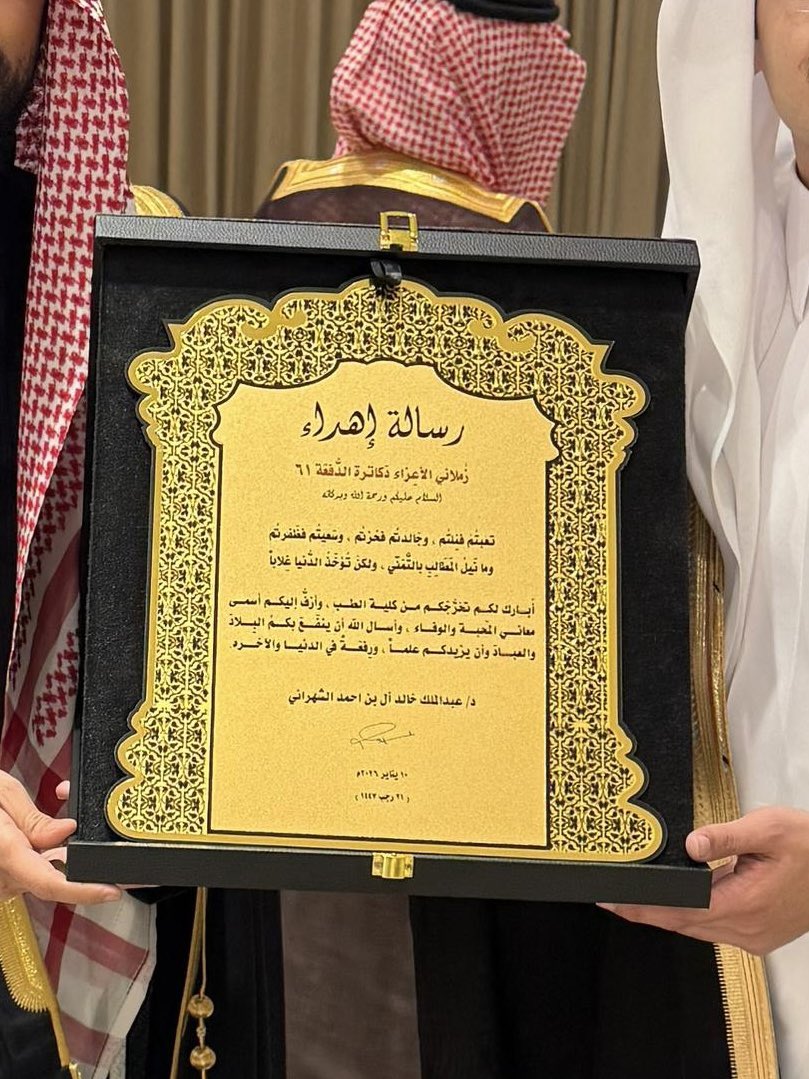 رسالة إهداء
زُملائي الأعِزاء دَكاترة الدَّفعَة ٦١
السلام عليكم ورحمة الله وبركاته
تعبتُم فَنِلتُم ، وجَالدتُم فَحُزتُم ، وسَعيتُم فَظَفرتُم
وما نَيلُ المَطَالِبِ بالتَّمَنّي ، ولكنْ تُؤخَذُ الدُّنيا غِلاباً
أبارك لكم تخرّجكم من كلية الطب ، وأزفُّ إليكم أسمى
معاني المَحبة والوفاء ، وأسال الله أن ينفَعَ بكمُ البِلادَ
والعبـادَ وأن يزيدكـم علمـاً ، ورِفعَةً في الدنيا والآخره
د/ عبدالملك خالد آل بن احمد الشهراني
١٠ يناير ٢٠٢٦م
( ٢١ رجب ١٤٤٧ )